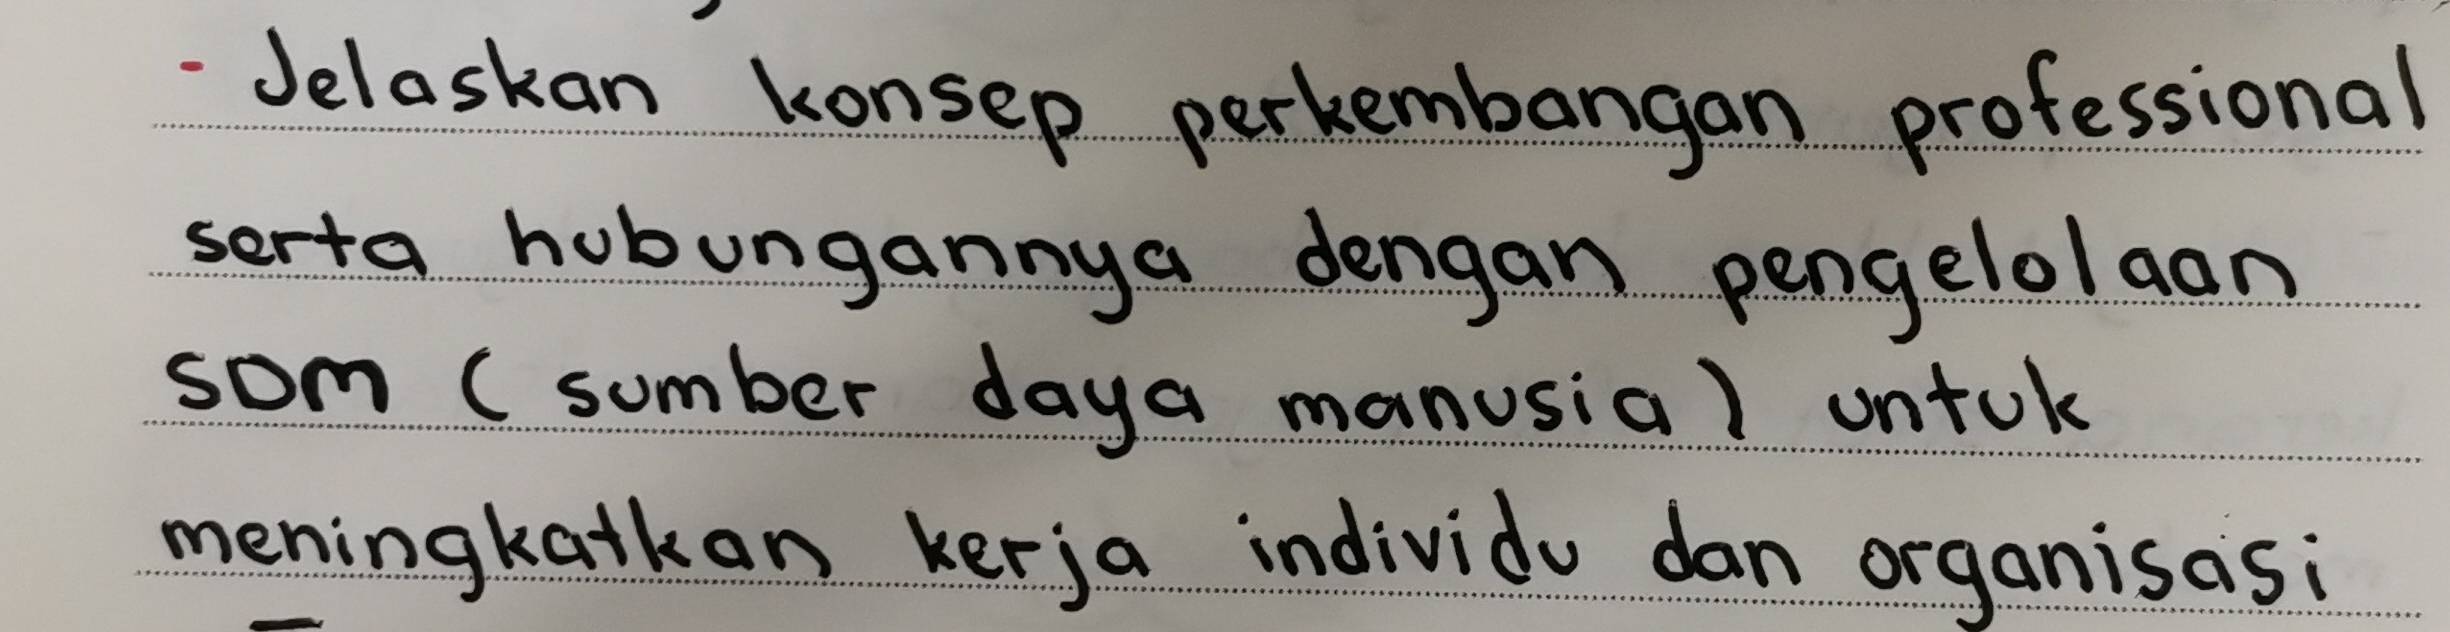 - Jelaskan konsep perkembangan professional
serta hubungannya dengan pengelolaan
SDM (sumber daya manusia) untuk
meningkatkan kerja individu dan organisasi